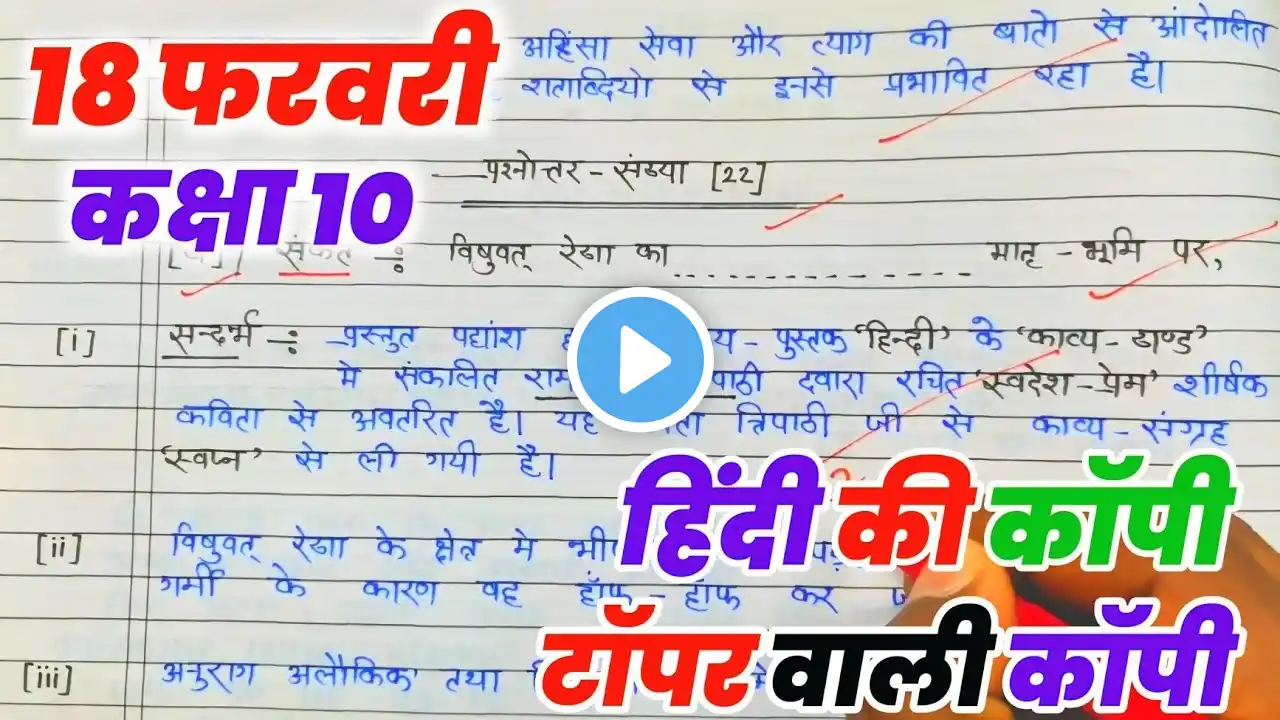 18 फरवरी
कक्षा 10
अहिंसा सेवा और त्याग की बातो से आंदोलित
शताब्दियो से इनसे प्रभावित रहा है।
प्रश्नोत्तर - संख्या [22]
संकेत ÷ विषुवत् रेखा का .............. मातृ - भूमि पर,
[i] सन्दर्भ -: प्रस्तुत पद्यांश पुस्तक 'हिन्दी' के 'काव्य - खण्ड'
मे संकलित राम दवारा रचित 'स्वदेश - प्रेम' शीर्षक
कविता से अवतरित है। यह त्रिपाठी जी से काव्य - संग्रह
'स्वप्न' से ली गयी है।
[ii] विषुवत् रेखा के क्षेत्र मे
गर्मी के कारण वह हाँफ - हाँफ कर
[iii] अनुराग अलौकिक तथा
हिंदी की कॉपी
टॉपर वाली कॉपी